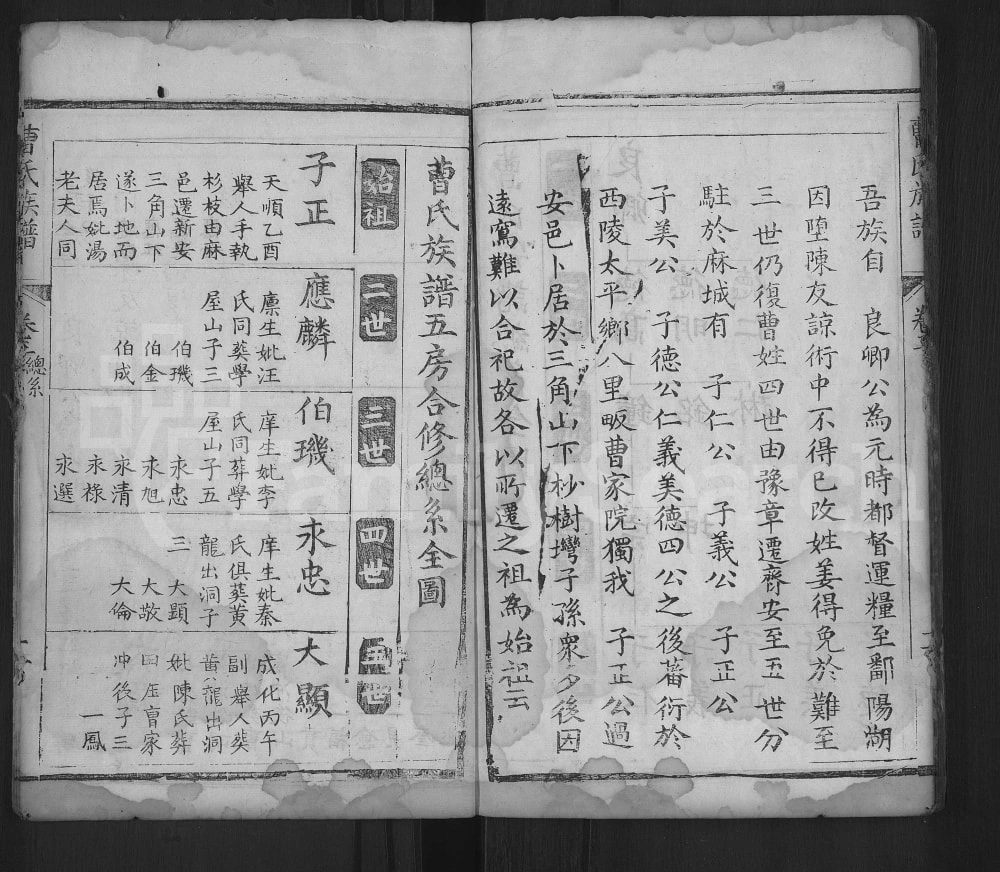 吾族自 良卿公為元時都督運糧至鄱陽湖
因墮陳友諒術中不得已改姓姜得免於難至
三世仍復曹姓四世由豫章遷齊安至五世分
駐於麻城有 子仁公 子義公 子正公
子美公 子德公仁義美德四公之後蕃衍於
西陵太平鄉八里畈曹家院獨我 子正公過
安邑卜居於三角山下杪樹塆子孫衆多後因
遠寫難以合祀故各以所遷之祖為始祖云
曹氏族譜五房合修總系全圖
始祖
二世
三世
四世
五世
子正
天順乙酉
舉人手執
杉枝由麻
邑遷新安
三角山下
遂卜地而
居焉妣湯
老夫人同
應麟
廪生妣汪
氏同葬學
屋山子三
伯璣
伯金
伯成
伯璣
庠生妣李
氏同葬學
屋山子五
永忠
永旭
永清
永祿
永選
永忠
庠生妣秦
氏俱葬黄
龍出洞子
三 大顯
大敬
大倫
大顯
成化丙午
副舉人葬
黄龍出洞
妣陳氏葬
冲後子三
一鳳
曹氏族譜
總系